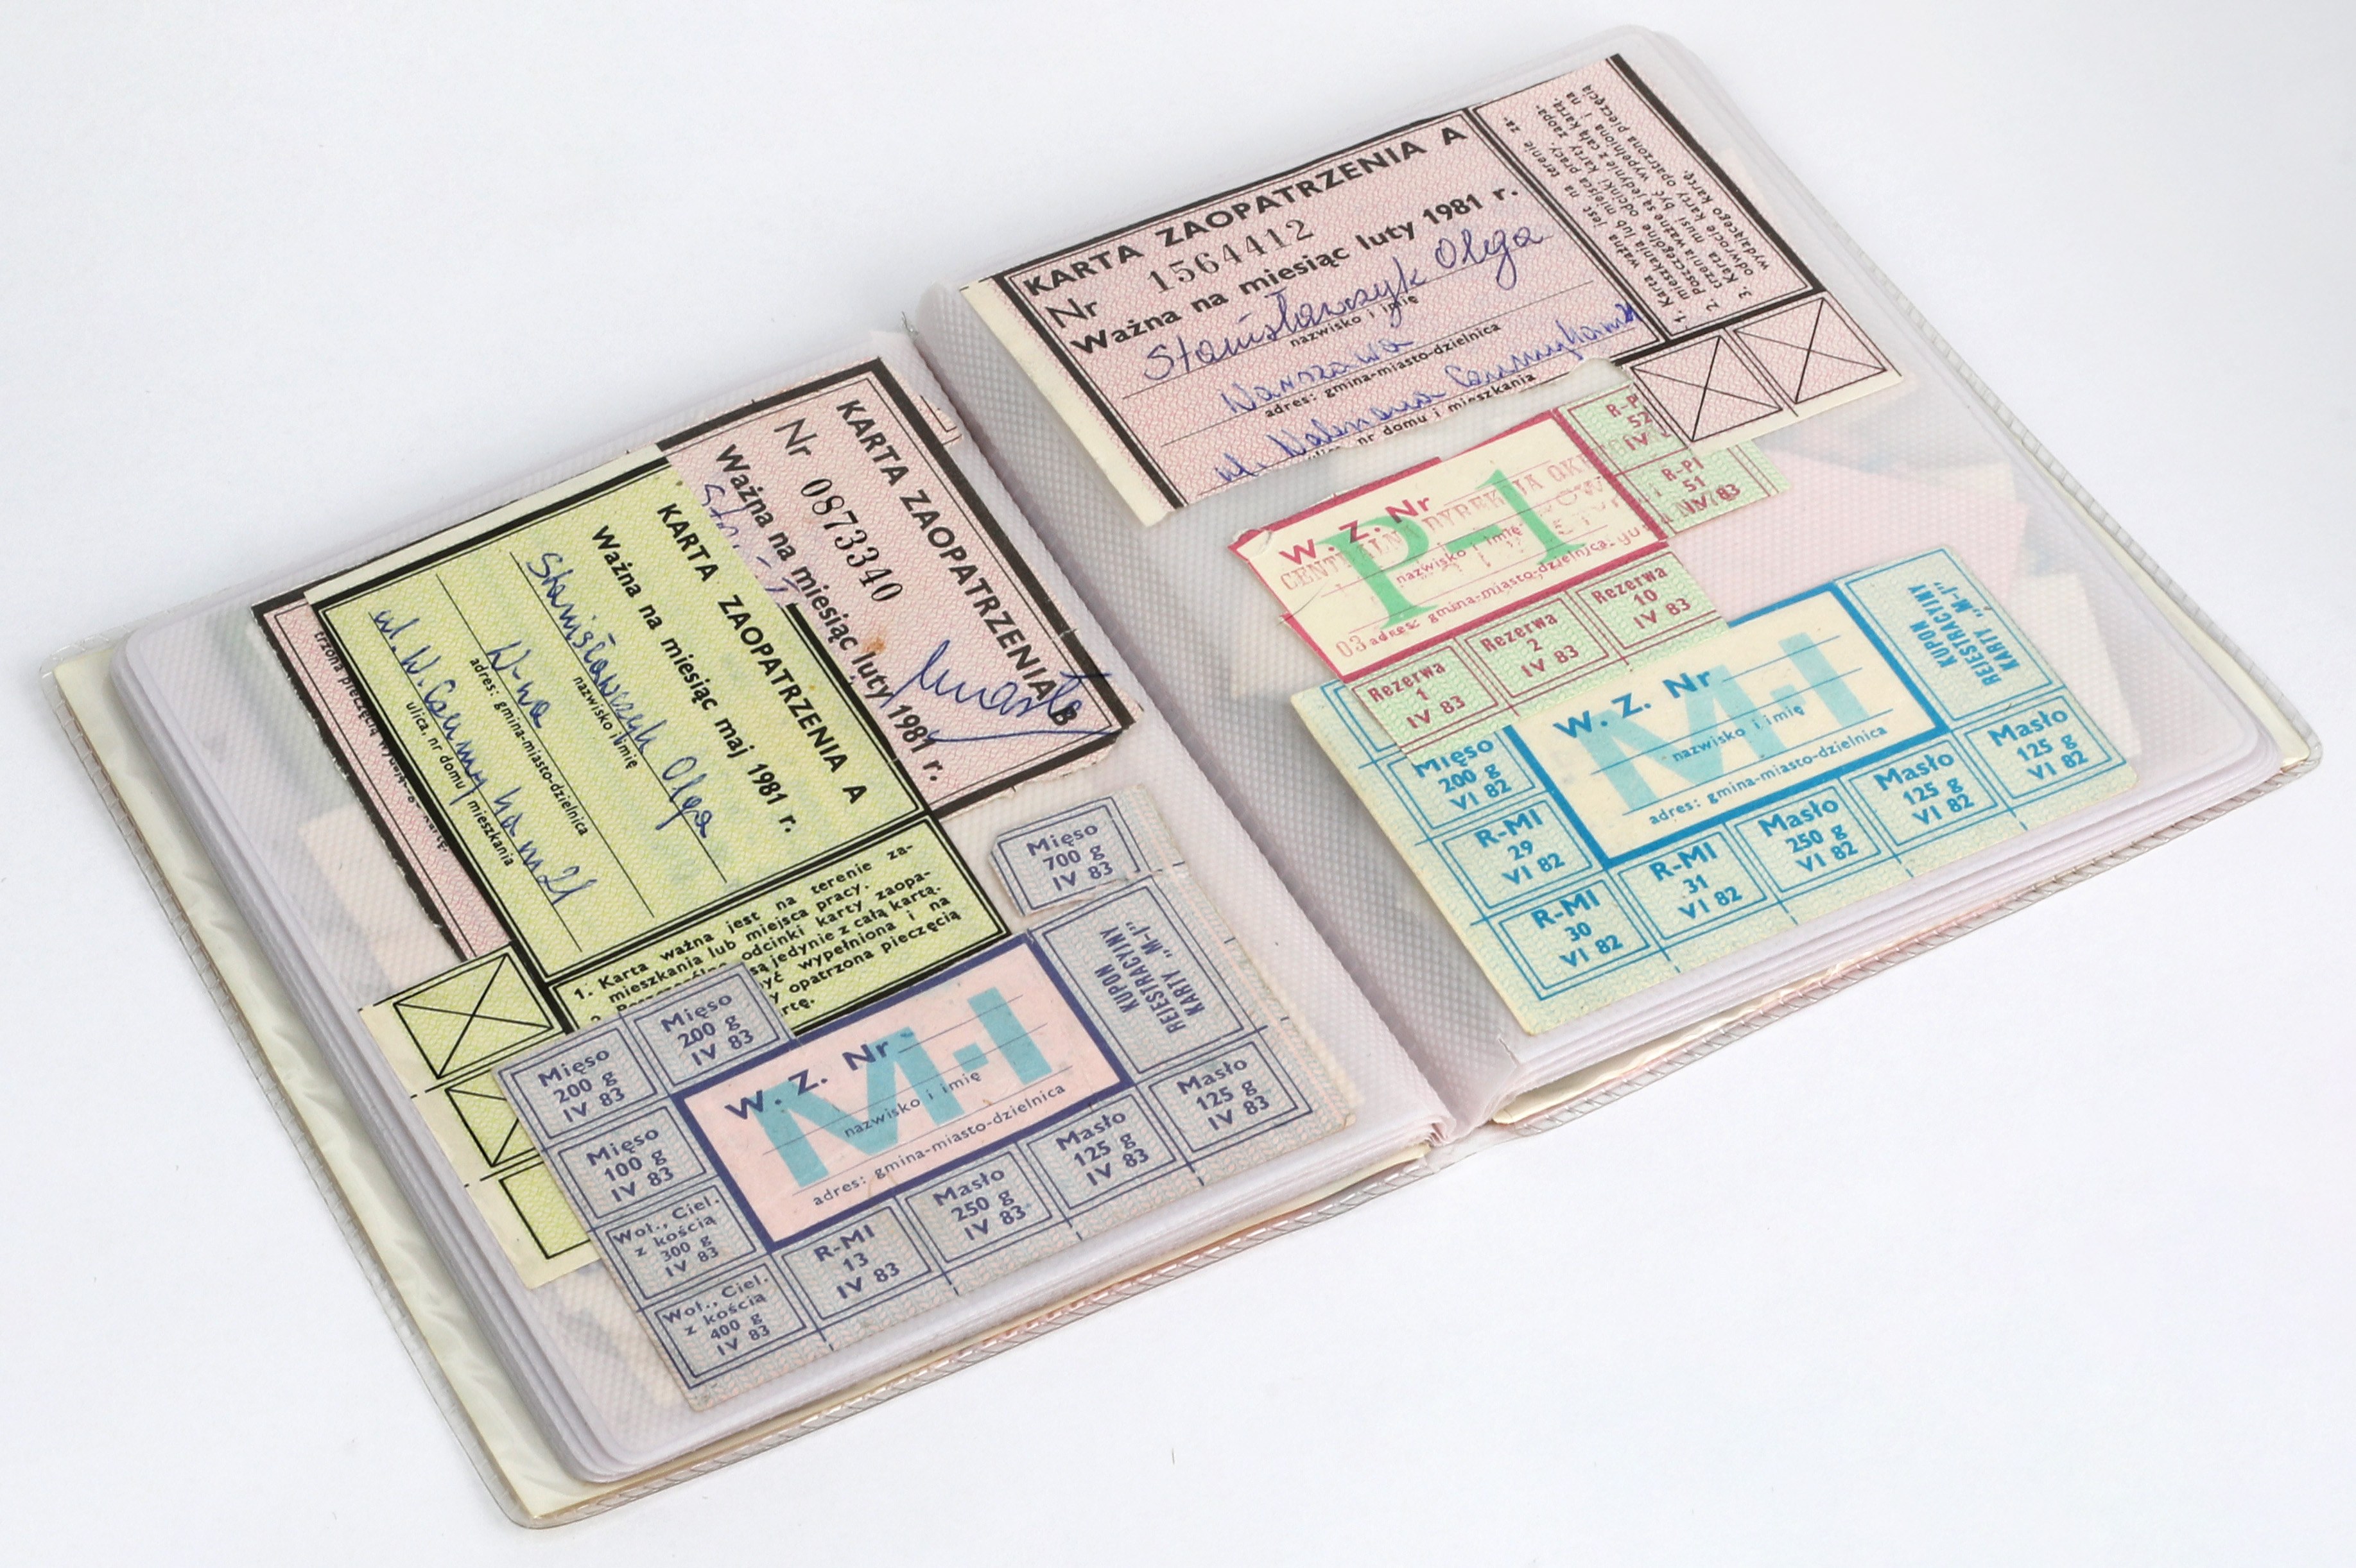 KARTA ZAOPATRZENIA B
Nr 0873340
Ważna na miesiąc luty 1981 r.
trzona pieczęcią
kartę.
KARTA ZAOPATRZENIA A
Ważna na miesiąc maj 1981 r.
Stanisławczyk Olga
nazwisko i imię
W-wa
adres: gmina-miasto-dzielnica
ul. W. 21
ulica, nr domu i mieszkania
1. Karta ważna jest na terenie za-
mieszkania lub miejsca pracy.
2. odcinki karty zaopa-
są jedynie z całą kartą.
być wypełniona i na
opatrzona pieczęcią
Mięso
700 g
IV 83
Mięso
200 g
IV 83
Mięso
200 g
IV 83
Mięso
100 g
IV 83
Woł., Ciel.
z kością
300 g
IV 83
Woł., Ciel.
z kością
400 g
IV 83
W. Z. Nr
M-I
nazwisko i imię
adres: gmina-miasto-dzielnica
KUPON
REJESTRACYJNY
KARTY „M-I"
R-MI
13
IV 83
Masło
250 g
IV 83
Masło
125 g
IV 83
Masło
125 g
IV 83
KARTA ZAOPATRZENIA A
Nr 1564412
Ważna na miesiąc luty 1981 r.
Stanisławczyk Olga
nazwisko i imię
Warszawa
adres: gmina-miasto-dzielnica
ul.
nr domu i mieszkania
1. Karta ważna jest na terenie za-
mieszkania lub miejsca pracy.
2. Poszczególne odcinki karty zaopa-
trzenia ważne są jedynie z całą kartą.
3. Karta musi być wypełniona i na
odwrocie karty opatrzona pieczęcią
wydającego kartę.
W. Z. Nr
P-1
nazwisko i imię
adres: gmina-miasto-dzielnica
R-PI
52
IV
R-PI
51
IV 83
Rezerwa
1
IV 83
Rezerwa
2
IV 83
Rezerwa
10
IV 83
Mięso
200 g
VI 82
R-MI
29
VI 82
R-MI
30
VI 82
W. Z. Nr
M-I
nazwisko i imię
adres: gmina-miasto-dzielnica
KUPON
REJESTRACYJNY
KARTY „M-I"
R-MI
31
VI 82
Masło
250 g
VI 82
Masło
125 g
VI 82
Masło
125 g
VI 82